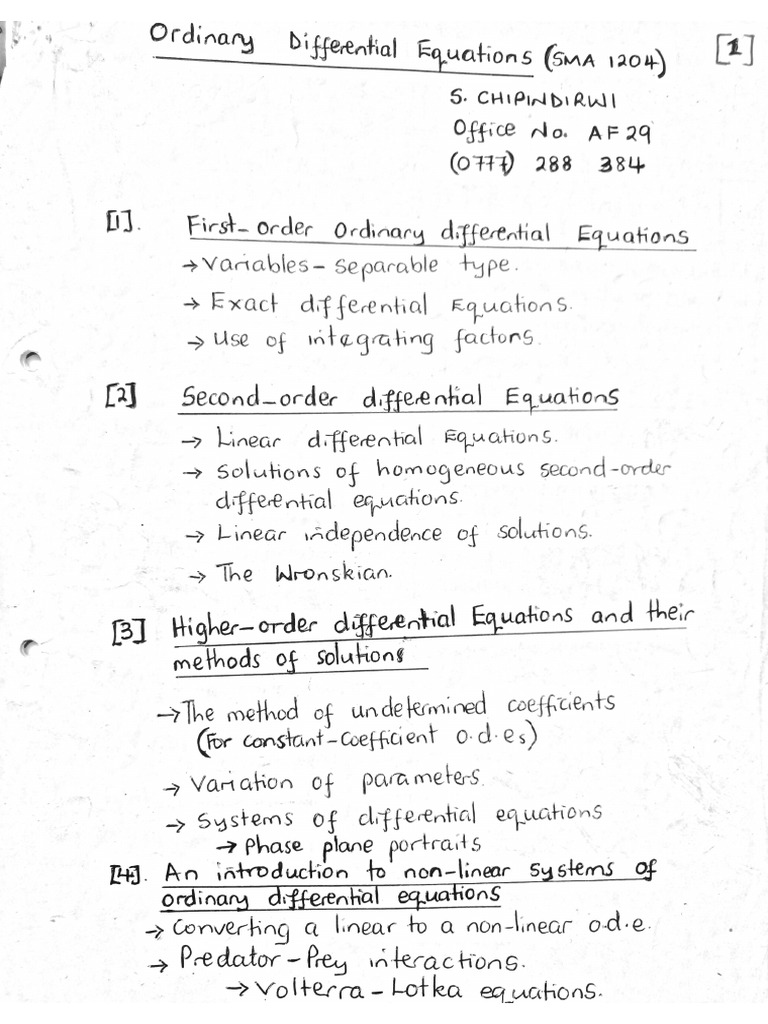 Ordinary Differential Equations (SMA 1204) [1]
S. CHIPINDIRWI
Office No. AF29
(0777) 288 384
[1]. First-order Ordinary differential Equations
→ Variables-separable type.
→ Exact differential Equations.
→ Use of integrating factors.
[2] Second-order differential Equations
→ Linear differential Equations.
→ Solutions of homogeneous second-order
differential equations.
→ Linear independence of solutions.
→ The Wronskian.
[3] Higher-order differential Equations and their
methods of solutions
→ The method of undetermined coefficients
(For constant-coefficient o.d.es)
→ Variation of parameters.
→ Systems of differential equations
→ Phase plane portraits
[4]. An introduction to non-linear systems of
ordinary differential equations
→ Converting a linear to a non-linear o.d.e.
→ Predator-Prey interactions.
→ Volterra-Lotka equations.